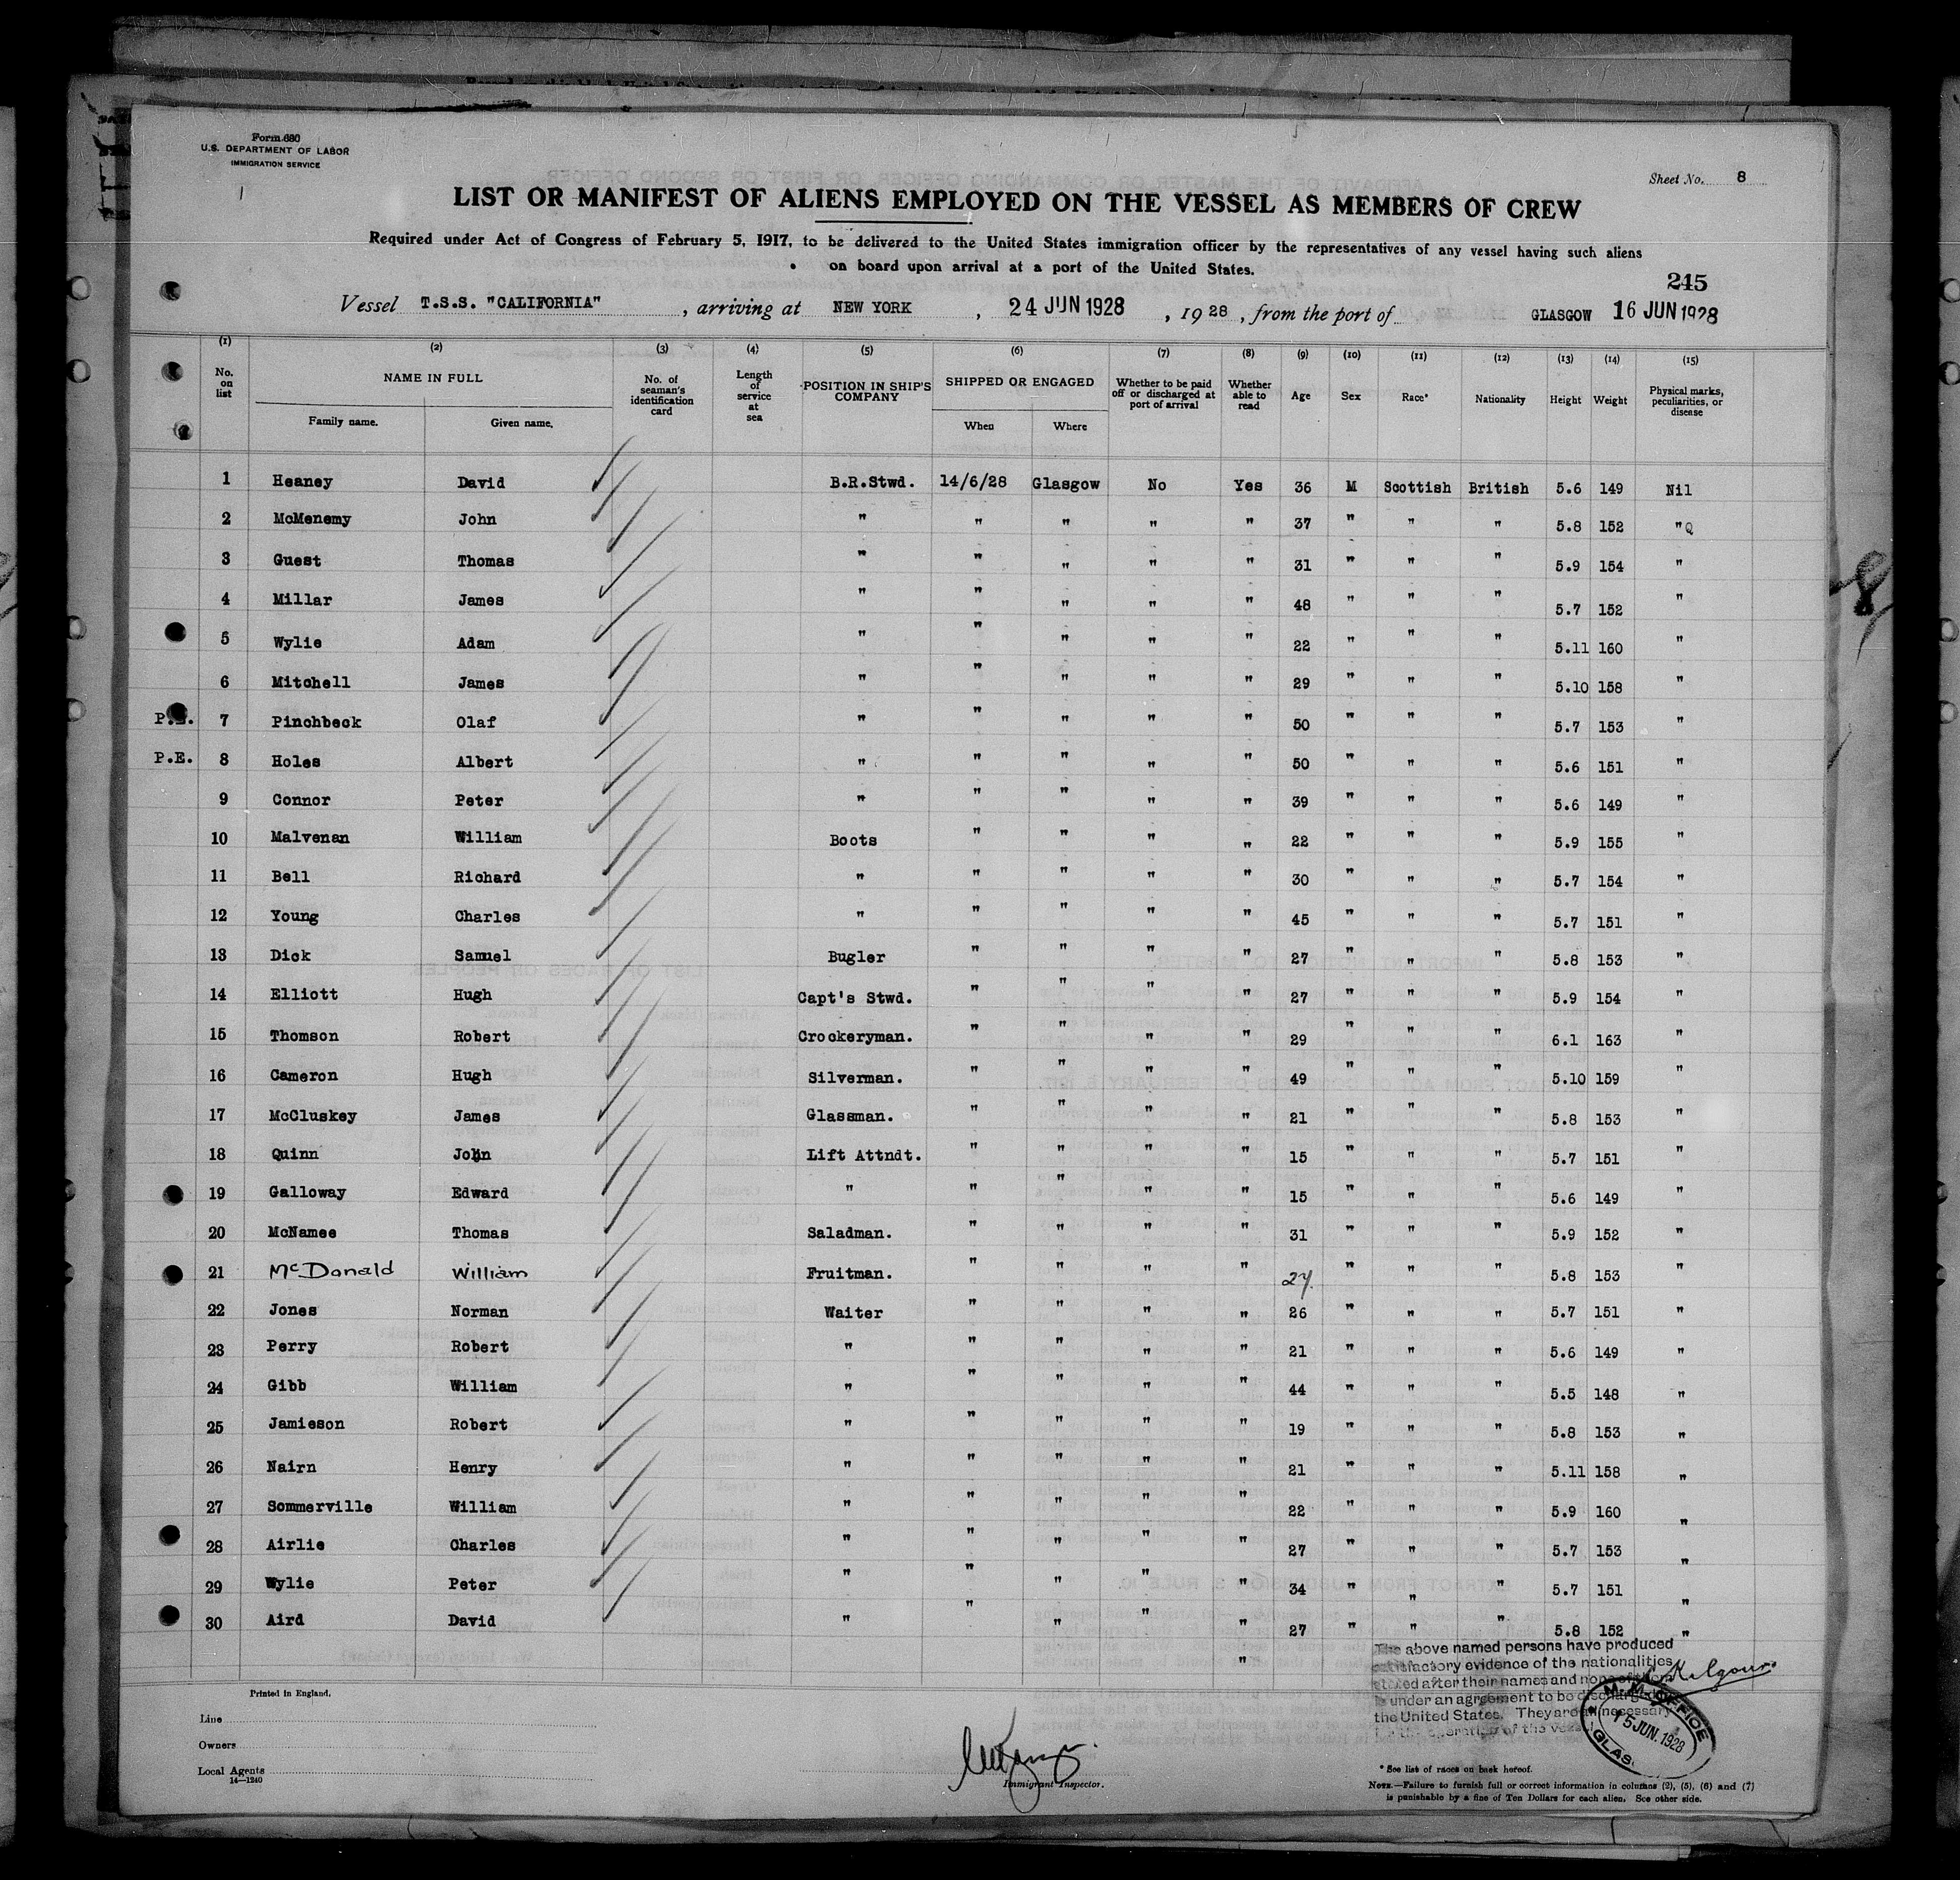 Form 680
U.S. DEPARTMENT OF LABOR
IMMIGRATION SERVICE
Sheet No. 8
LIST OR MANIFEST OF ALIENS EMPLOYED ON THE VESSEL AS MEMBERS OF CREW
Required under Act of Congress of February 5, 1917, to be delivered to the United States immigration officer by the representatives of any vessel having such aliens
on board upon arrival at a port of the United States.
245
Vessel T.S.S. "CALIFORNIA", arriving at NEW YORK, 24 JUN 1928, 1928, from the port of GLASGOW 16 JUN 1928
(1) (2) (3) (4) (5) (6) (7) (8) (9) (10) (11) (12) (13) (14) (15)
No. on list NAME IN FULL Family name. Given name. No. of seaman's identification card Length of service at sea POSITION IN SHIP'S COMPANY SHIPPED OR ENGAGED When Where Whether to be paid off or discharged at port of arrival Whether able to read Age Sex Race* Nationality Height Weight Physical marks, peculiarities, or disease
1 Heaney David B.R.Stwd. 14/6/28 Glasgow No Yes 36 M Scottish British 5.6 149 Nil
2 McMenemy John " " " " " 37 " " " 5.8 152 "
3 Guest Thomas " " " " " 31 " " " 5.9 154 "
4 Millar James " " " " " 48 " " " 5.7 152 "
5 Wylie Adam " " " " " 22 " " " 5.11 160 "
6 Mitchell James " " " " " 29 " " " 5.10 158 "
P.E. 7 Pinchbeck Olaf " " " " " 50 " " " 5.7 153 "
P.E. 8 Holes Albert " " " " " 50 " " " 5.6 151 "
9 Connor Peter " " " " " 39 " " " 5.6 149 "
10 Malvenan William Boots " " " " 22 " " " 5.9 155 "
11 Bell Richard " " " " " 30 " " " 5.7 154 "
12 Young Charles " " " " " 45 " " " 5.7 151 "
13 Dick Samuel Bugler " " " " 27 " " " 5.8 153 "
14 Elliott Hugh Capt's Stwd. " " " " 27 " " " 5.9 154 "
15 Thomson Robert Crockeryman. " " " " 29 " " " 6.1 163 "
16 Cameron Hugh Silverman. " " " " 49 " " " 5.10 159 "
17 McCluskey James Glassman. " " " " 21 " " " 5.8 153 "
18 Quinn John Lift Attndt. " " " " 15 " " " 5.7 151 "
19 Galloway Edward " " " " " 15 " " " 5.6 149 "
20 McNamee Thomas Saladman. " " " " 31 " " " 5.9 152 "
21 McDonald William Fruitman. " " " " 27 " " " 5.8 153 "
22 Jones Norman Waiter " " " " 26 " " " 5.7 151 "
23 Perry Robert " " " " " 21 " " " 5.6 149 "
24 Gibb William " " " " " 44 " " " 5.5 148 "
25 Jamieson Robert " " " " " 19 " " " 5.8 153 "
26 Nairn Henry " " " " " 21 " " " 5.11 158 "
27 Sommerville William " " " " " 22 " " " 5.9 160 "
28 Airlie Charles " " " " " 27 " " " 5.7 153 "
29 Wylie Peter " " " " " 34 " " " 5.7 151 "
30 Aird David " " " " " 27 " " " 5.8 152 "
The above named persons have produced
satisfactory evidence of the nationalities
stated after their names and none of them
is under an agreement to be discharged in
the United States. They are all necessary
for the operation of the vessel
Kilgour
M.M. OFFICE
15 JUN. 1928
GLAS.
Printed in England.
Line
Owners
Local Agents
14—1240
Immigrant Inspector.
* See list of races on back hereof.
NOTE.—Failure to furnish full or correct information in columns (2), (5), (6) and (7)
is punishable by a fine of Ten Dollars for each alien. See other side.